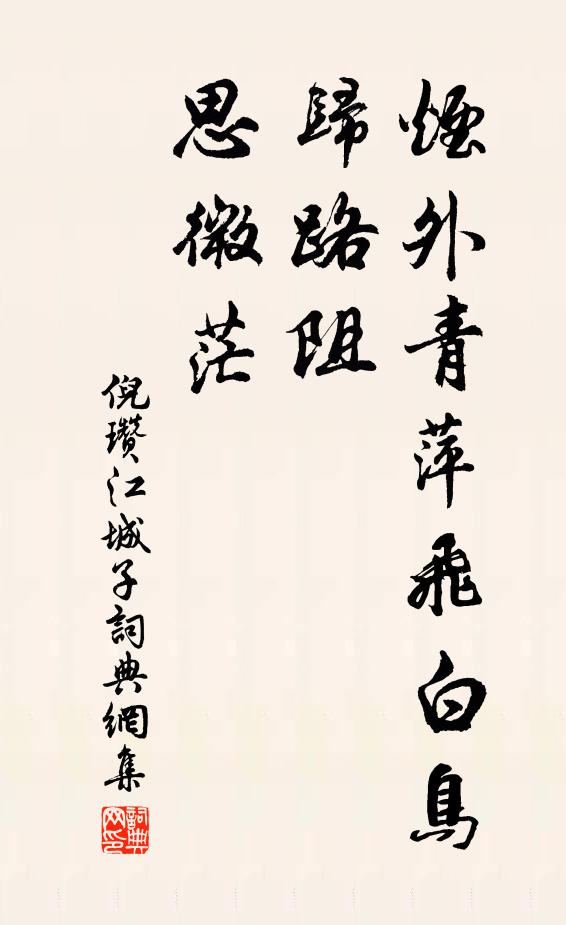 煙外青萍飛白鳥
歸路阻
思微茫
倪瓚江城子詞典網集
詞典網印